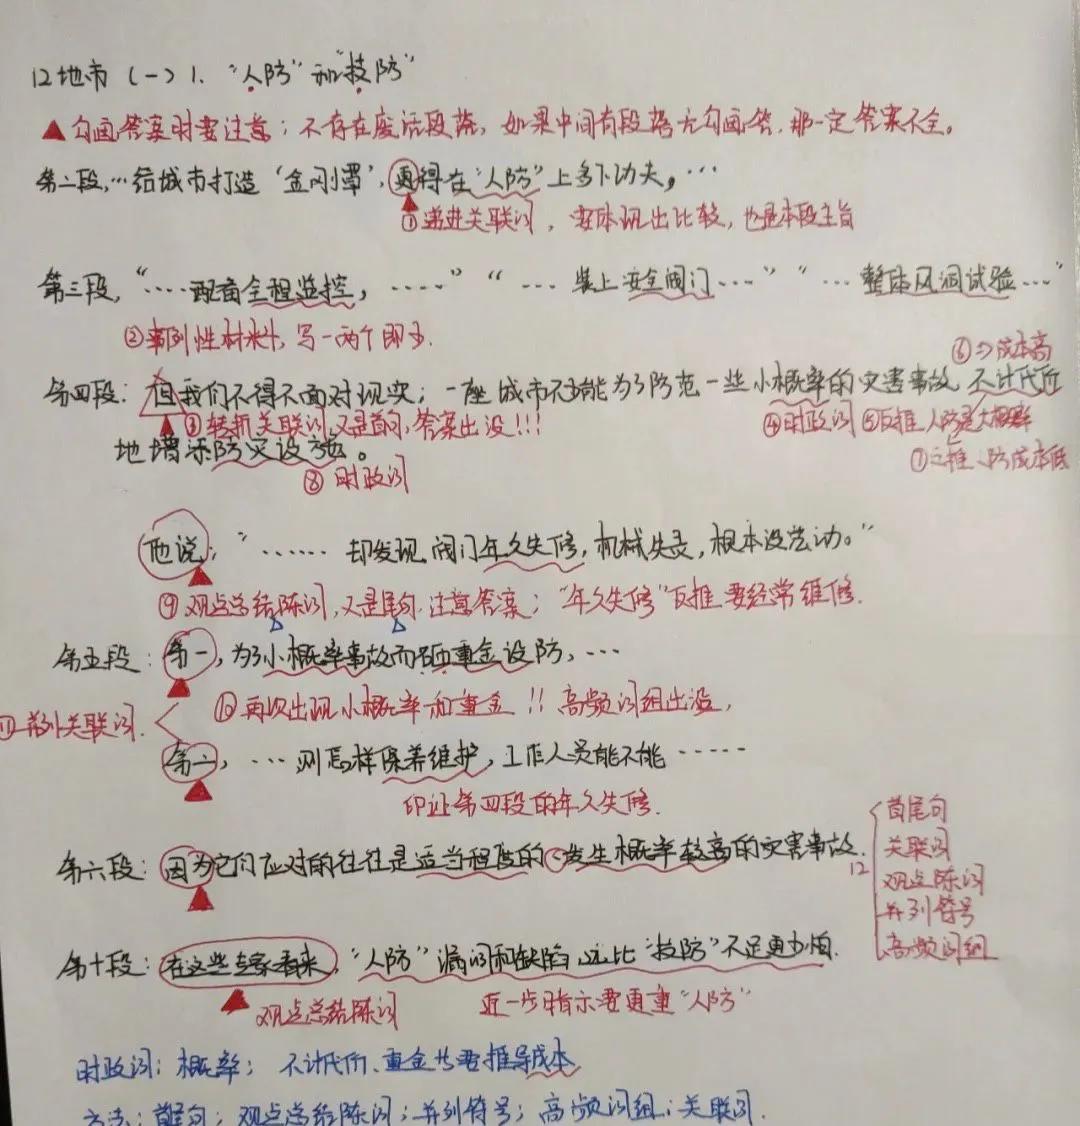 12地市(一)1. “人防”和“技防”
▲勾画答案时要注意：不存在废话段落，如果中间有段落无勾画答，那一定答案不全。
第二段，…给城市打造‘金刚罩’，更得在“人防”上多下功夫，…
①递进关联词，要体现出比较，也是本段主旨
第三段，“……配备全程监控，……”“……装上安全阀门……”“…整体风洞试验…”
②案例性材料，写一两个即可.
⑥⇒成本高
第四段：但我们不得不面对现实：一座城市不可能为了防范一些小概率的灾害事故 不计代价
③转折关联词，又是首句，答案出没!!!
④时政词 ⑤反推 人防是大概率
地增添防灾设施。
⑦之推人防成本低
⑧时政词
他说：“……却发现阀门年久失修，机械失灵，根本没法动。”
⑨观点总结陈词，又是尾句，注意答案；“年久失修”反推要经常维修.
第五段：第一，为了小概率事故而砸重金设防，…
⑩再次出现小概率和重金!! 高频词组出没，
⑪并列关联词.
第二，…则怎样保养维护，工作人员能不能……
印证第四段的年久失修.
第六段：因为它们应对的往往是适当程度的、发生概率较高的灾害事故.
12
首尾句
关联词
观点陈词
并列符号
高频词组
第十段：在这些专家看来，“人防”漏洞和缺陷，远比“技防”不足更可怕.
观点总结陈词 近一步指示要更重“人防”
时政词：概率；不计代价、重金共要推导成本
方法：首尾句；观点总结陈词；并列符号；高频词组；关联词.